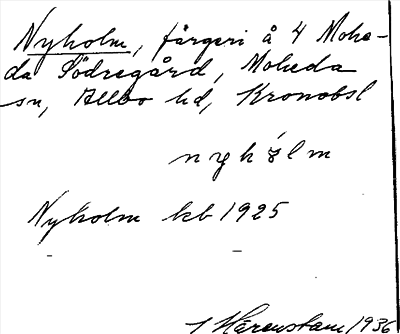 Nyholm, färgeri å 4 Mohe-
da Södregård, Moheda
sn, Allbo hd, Kronobsl
nyhólm
Nyholm kb 1925
Härenstam 1936